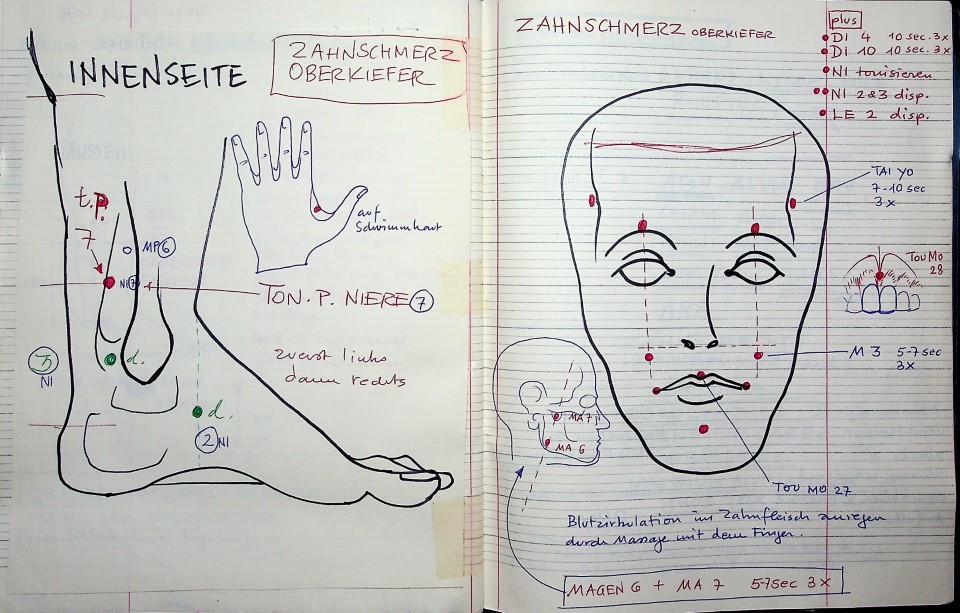 INNENSEITE
ZAHNSCHMERZ
OBERKIEFER
t.P.
7
MP 6
NI 7
TON. P. NIERE 7
auf
Schwimmhaut
zuerst links
dann rechts
d.
NI
d.
2 NI
ZAHNSCHMERZ OBERKIEFER
plus
DI 4 10 sec. 3x
DI 10 10 sec. 3x
NI tonisieren
NI 2&3 disp.
LE 2 disp.
TAI YO
7-10 sec
3x
TOU MO
28
M 3 5-7 sec
3x
MA 7
MA 6
TOU MO 27
Blutzirkulation im Zahnfleisch anregen
durch Massage mit dem Finger.
MAGEN 6 + MA 7 5-7 sec 3x